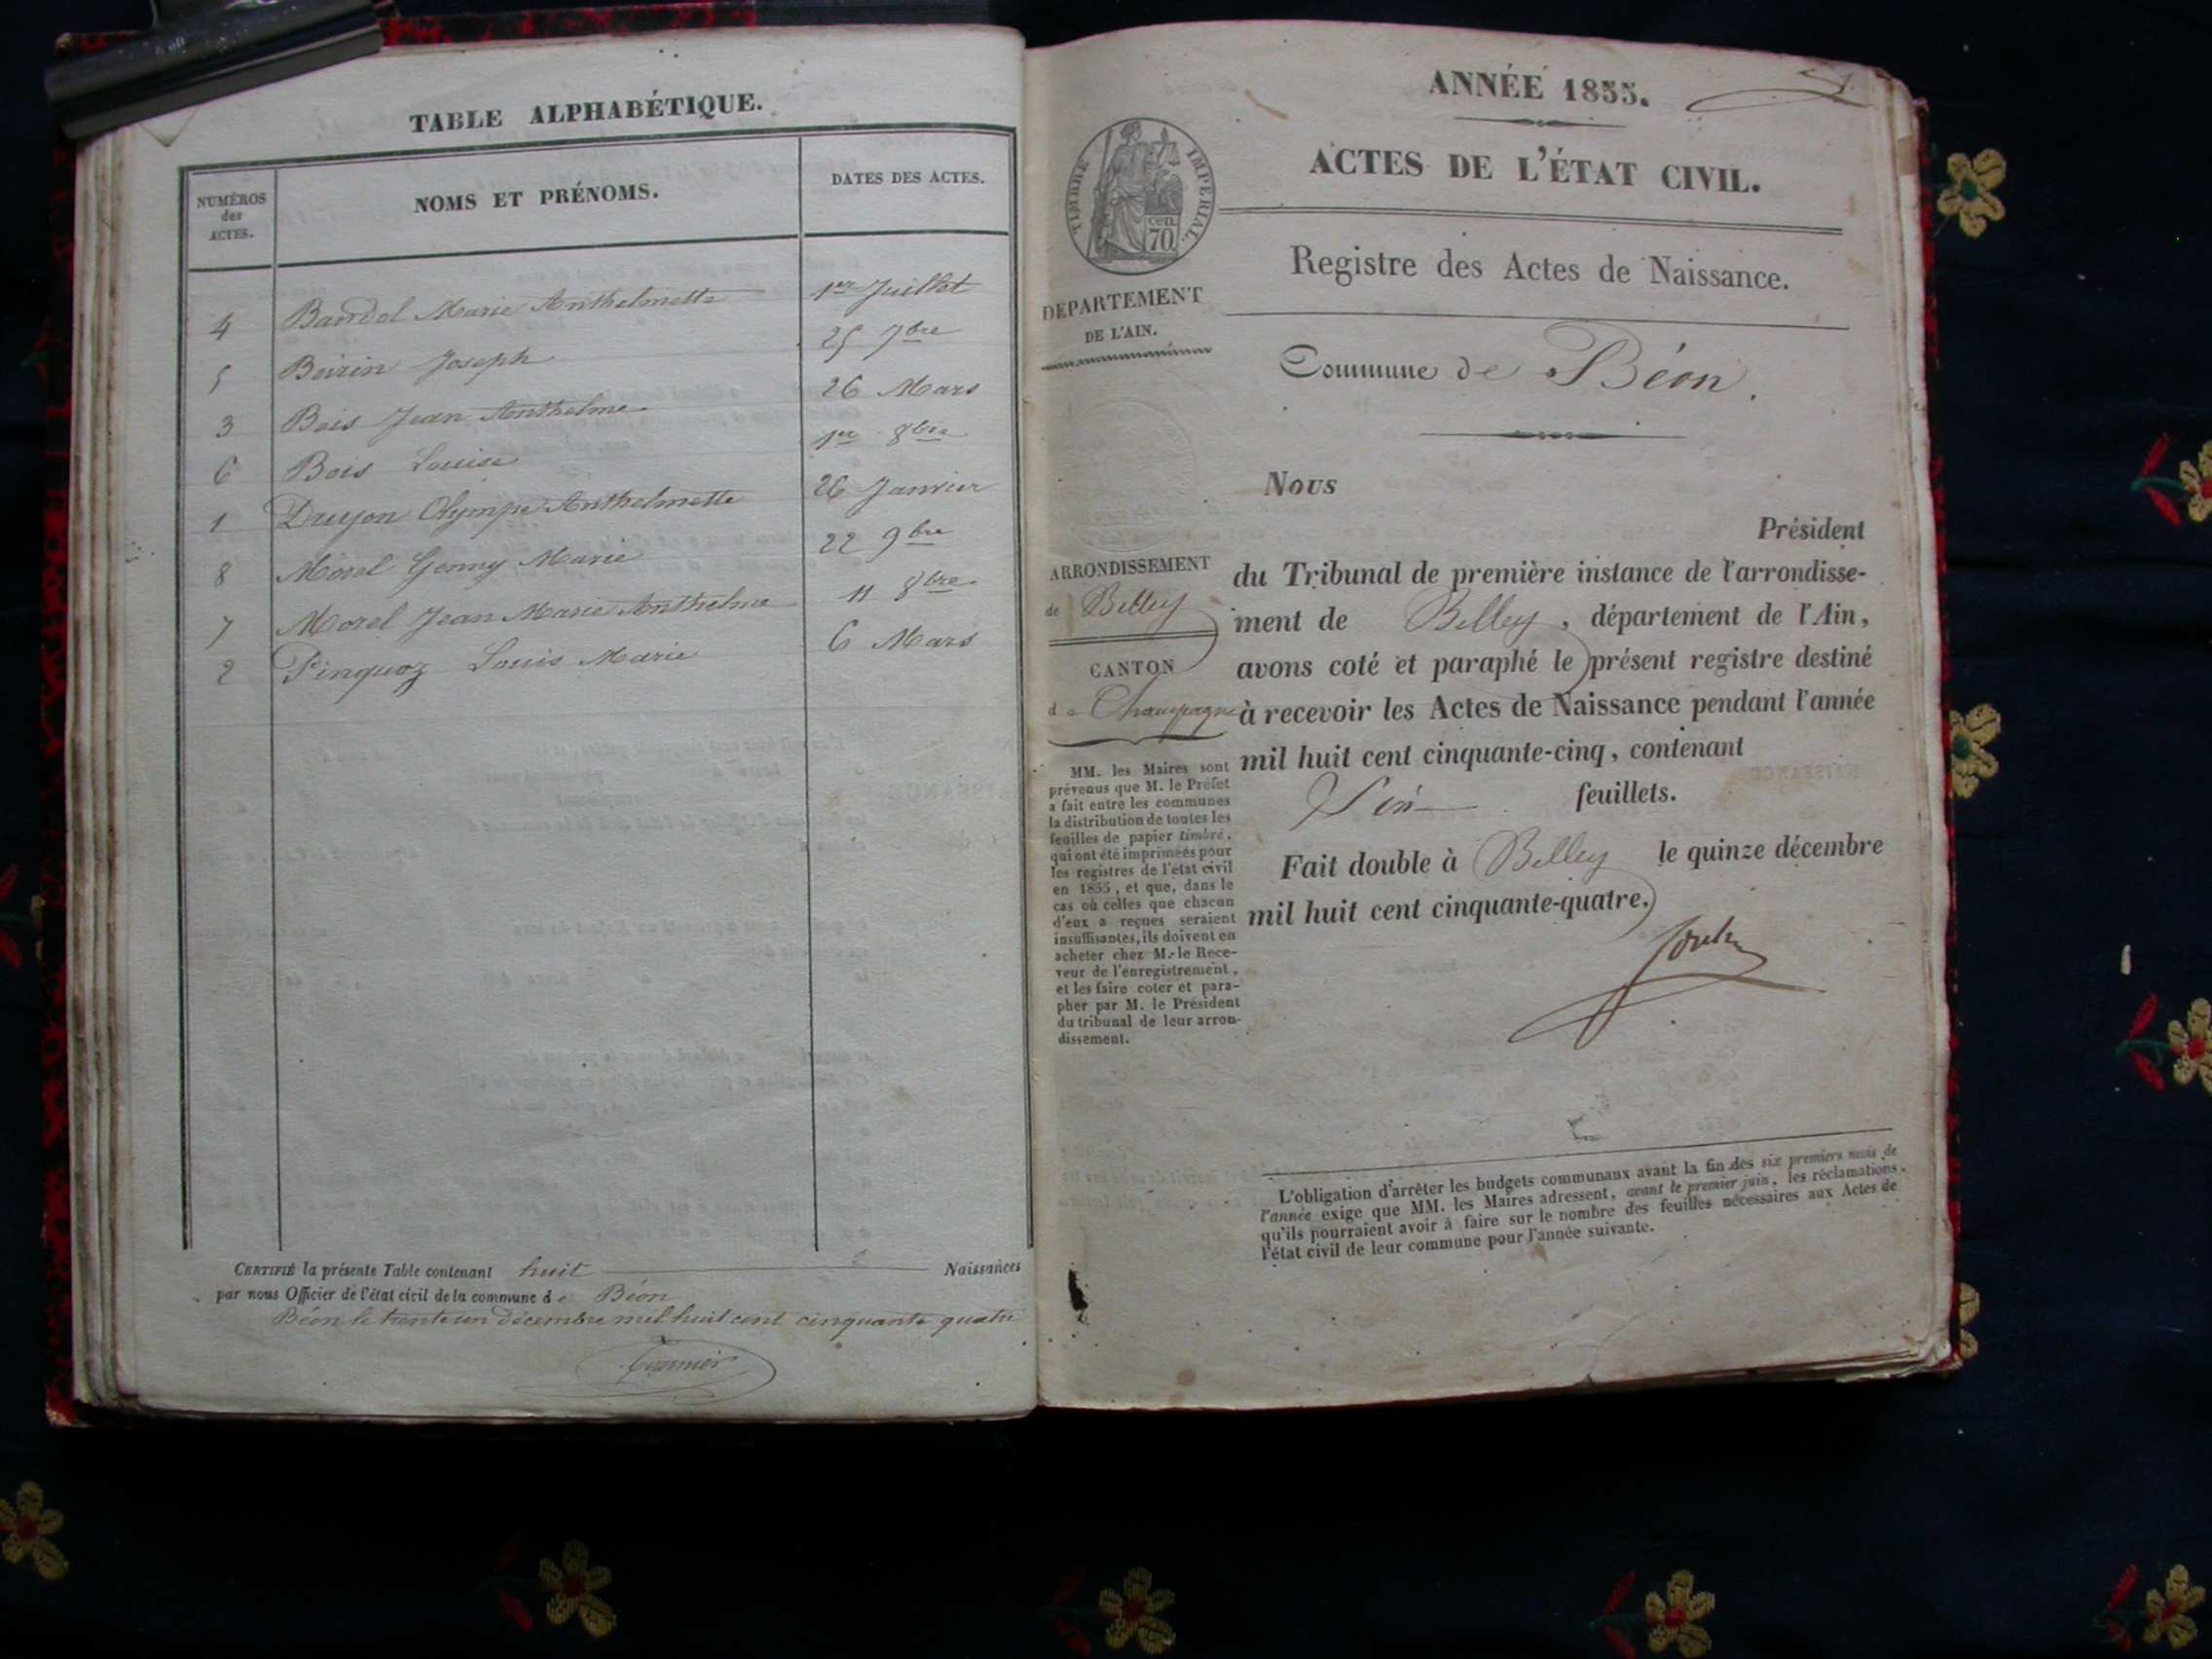 TABLE ALPHABÉTIQUE.
NUMÉROS
des
ACTES.
NOMS ET PRÉNOMS.
DATES DES ACTES.
4 Marie Anthelmette 1er Juillet
5 Joseph 25 7bre
3 Bois Jean Anthelme 26 Mars
6 Bois Louise 1er 8bre
1 Druyon Olympe Anthelmette 26 Janvier
8 Morel Genny Marie 22 9bre
7 Morel Jean Marie Anthelme 11 8bre
2 Pinquoz Louis Marie 6 Mars
CERTIFIÉ la présente Table contenant huit Naissances
par nous Officier de l'état civil de la commune de Béon
Béon le trente un décembre mil huit cent cinquante quatre
ANNÉE 1855.
1.
ACTES DE L'ÉTAT CIVIL.
TIMBRE IMPÉRIAL.
cen.
70
Registre des Actes de Naissance.
DÉPARTEMENT
DE L'AIN.
Commune de Béon.
Nous
Président
ARRONDISSEMENT
de Belley
CANTON
de Champagne
du Tribunal de première instance de l'arrondisse-
ment de Belley, département de l'Ain,
avons coté et paraphé le présent registre destiné
à recevoir les Actes de Naissance pendant l'année
mil huit cent cinquante-cinq, contenant
feuillets.
Fait double à Belley le quinze décembre
mil huit cent cinquante-quatre.
MM. les Maires sont
prévenus que M. le Préfet
a fait entre les communes
la distribution de toutes les
feuilles de papier timbré,
qui ont été imprimées pour
les registres de l'état civil
en 1855, et que, dans le
cas où celles que chacun
d'eux a reçues seraient
insuffisantes, ils doivent en
acheter chez M. le Rece-
veur de l'enregistrement,
et les faire coter et para-
pher par M. le Président
du tribunal de leur arron-
dissement.
L'obligation d'arrêter les budgets communaux avant la fin des six premiers mois de
l'année exige que MM. les Maires adressent, avant le premier juin, les réclamations
qu'ils pourraient avoir à faire sur le nombre des feuilles nécessaires aux Actes de
l'état civil de leur commune pour l'année suivante.